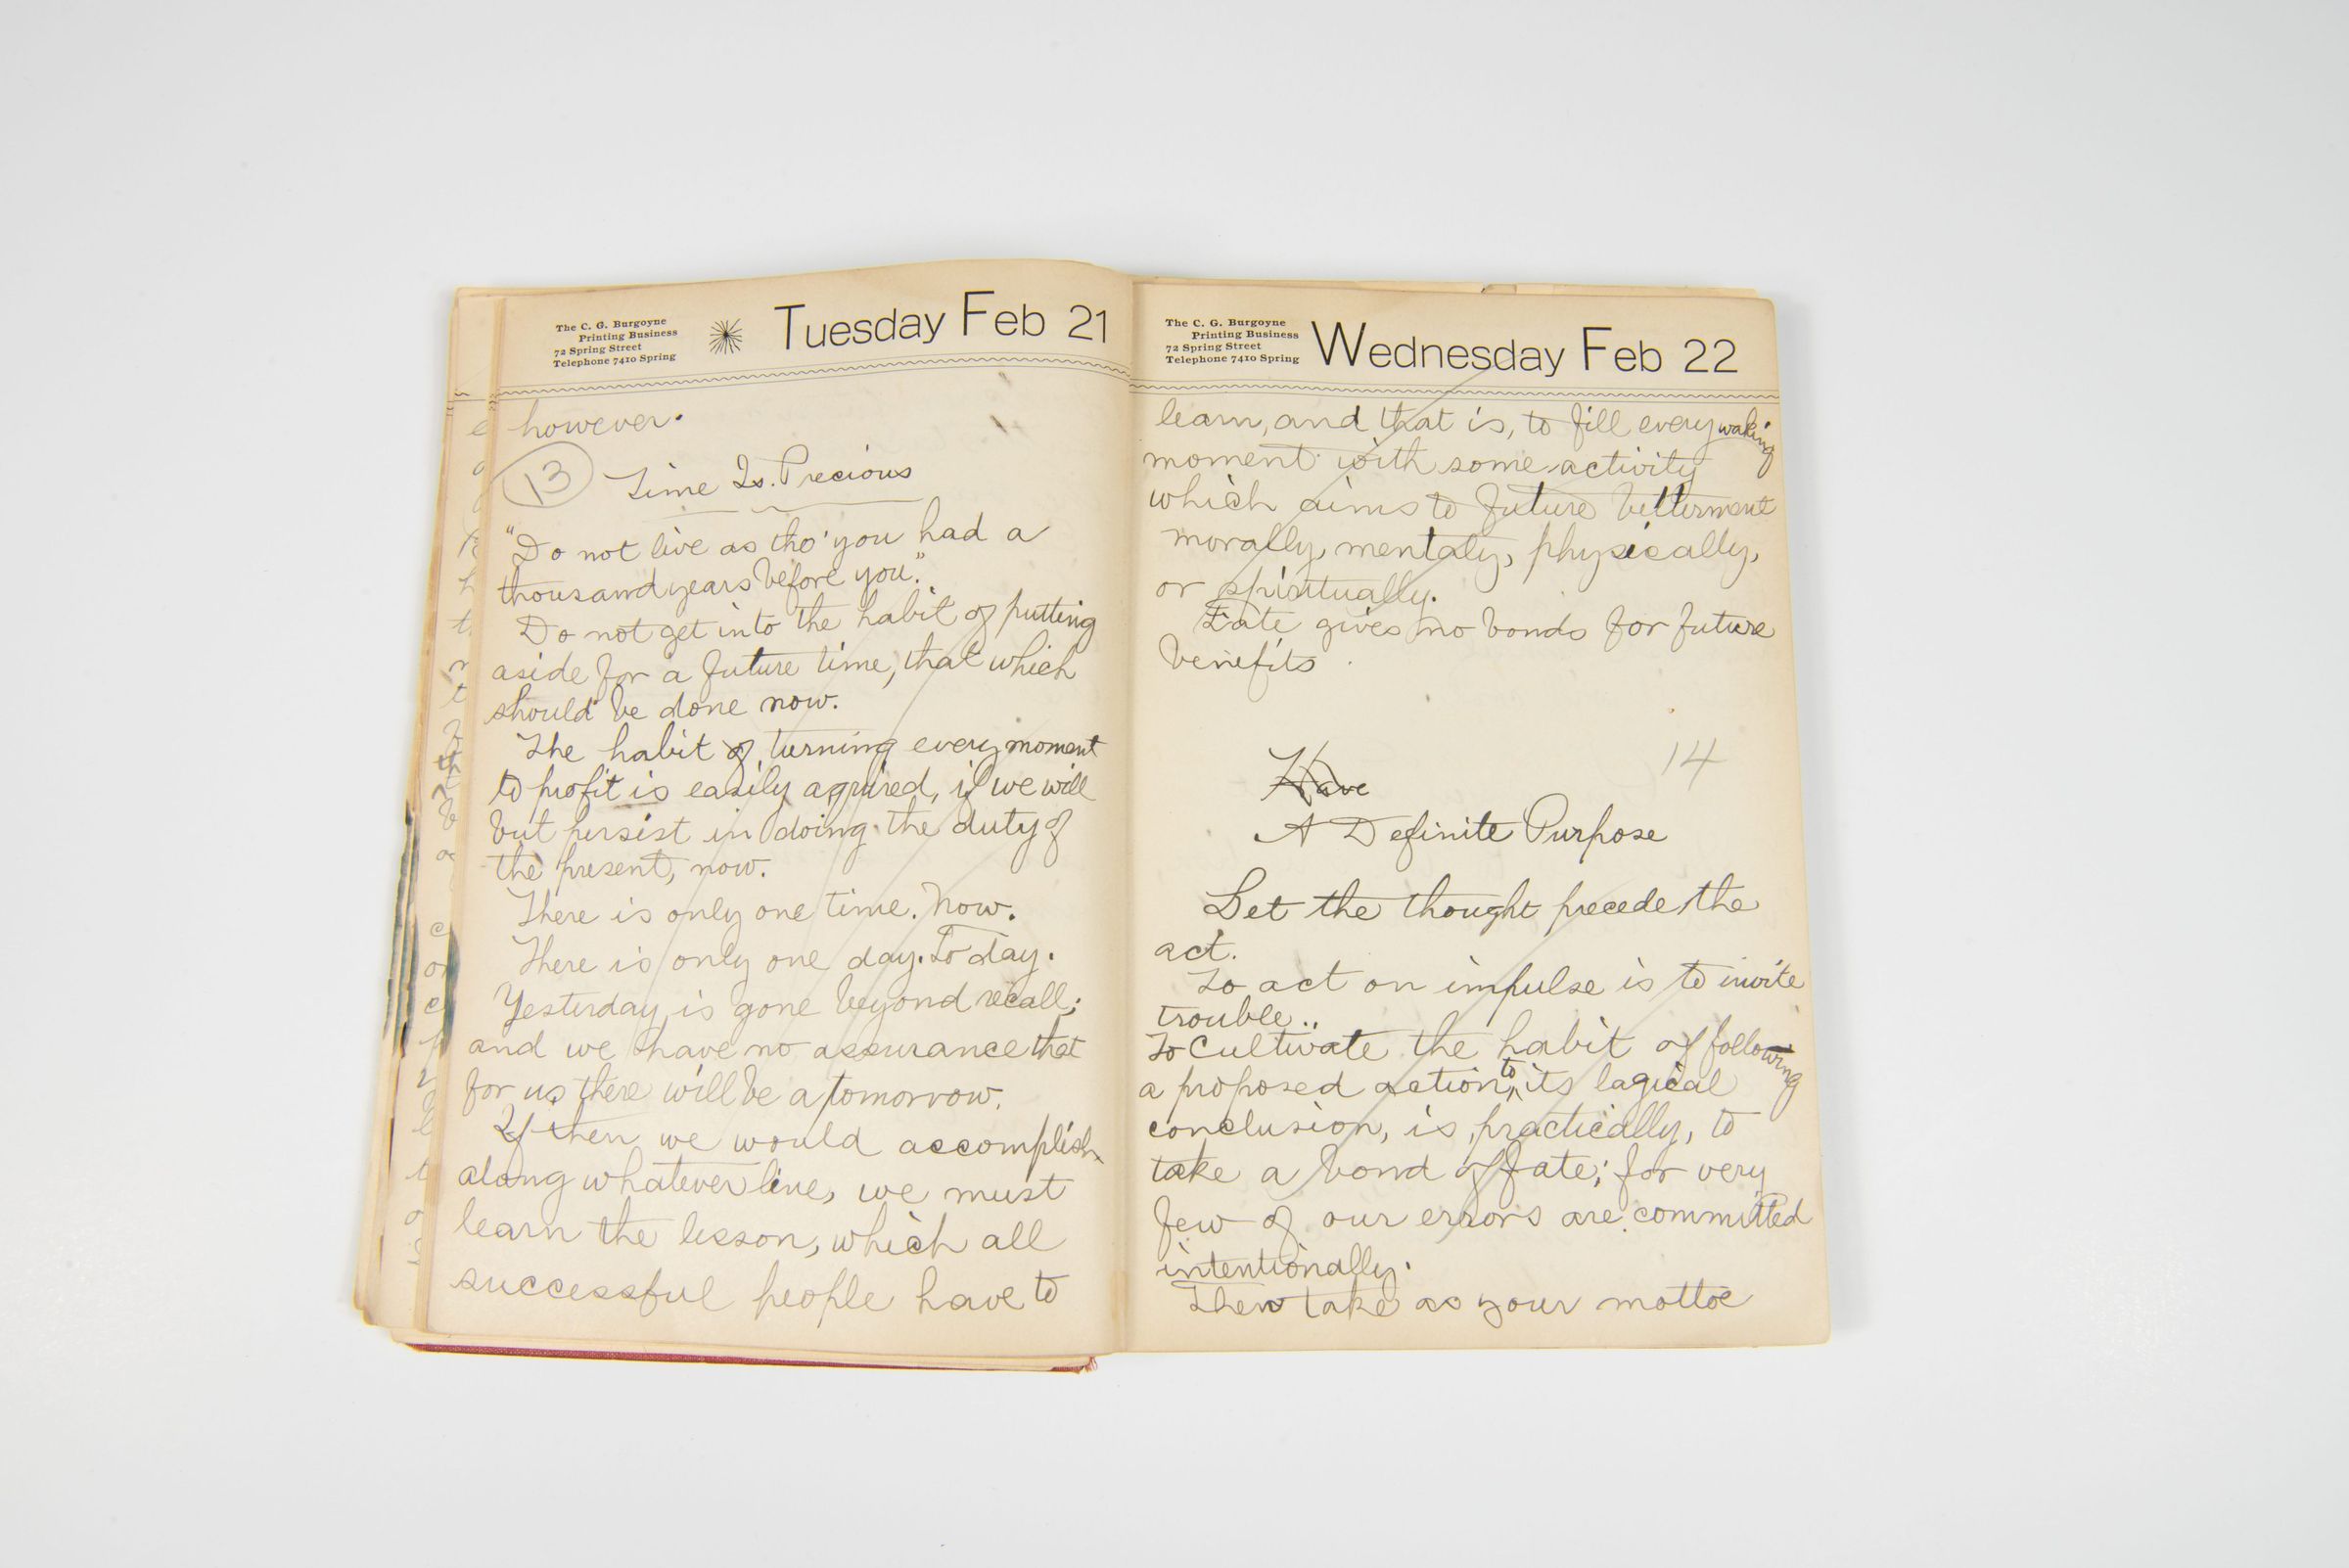 The C. G. Burgoyne
Printing Business
72 Spring Street
Telephone 7410 Spring
Tuesday Feb 21
however.
13 Time Is. Precious
"Do not live as tho' you had a
thousand years before you."
Do not get into the habit of putting
aside for a future time, that which
should be done now.
The habit of turning every moment
to profit is easily aqruired, if we will
but persist in doing the duty of
the present, now.
There is only one time. Now.
There is only one day. To day.
Yesterday is gone beyond recall;
and we have no assurance that
for us there will be a tomorrow.
If then we would accomplish
along whatever line, we must
learn the lesson, which all
successful people have to
The C. G. Burgoyne
Printing Business
72 Spring Street
Telephone 7410 Spring
Wednesday Feb 22
learn, and that is, to fill every waking
moment with some activity
which aims to future betterment
morally, mentaly, physically,
or spiritually.
Fate gives no bonds for future
benefits.
14
Have
A Definite Purpose
Let the thought precede the
act.
To act on impulse is to invite
trouble..
To cultivate the habit of following
a proposed action, to its logical
conclusion, is, practically, to
take a bond of fate; for very
few of our errors are committed
intentionally.
Then take as your mottoe